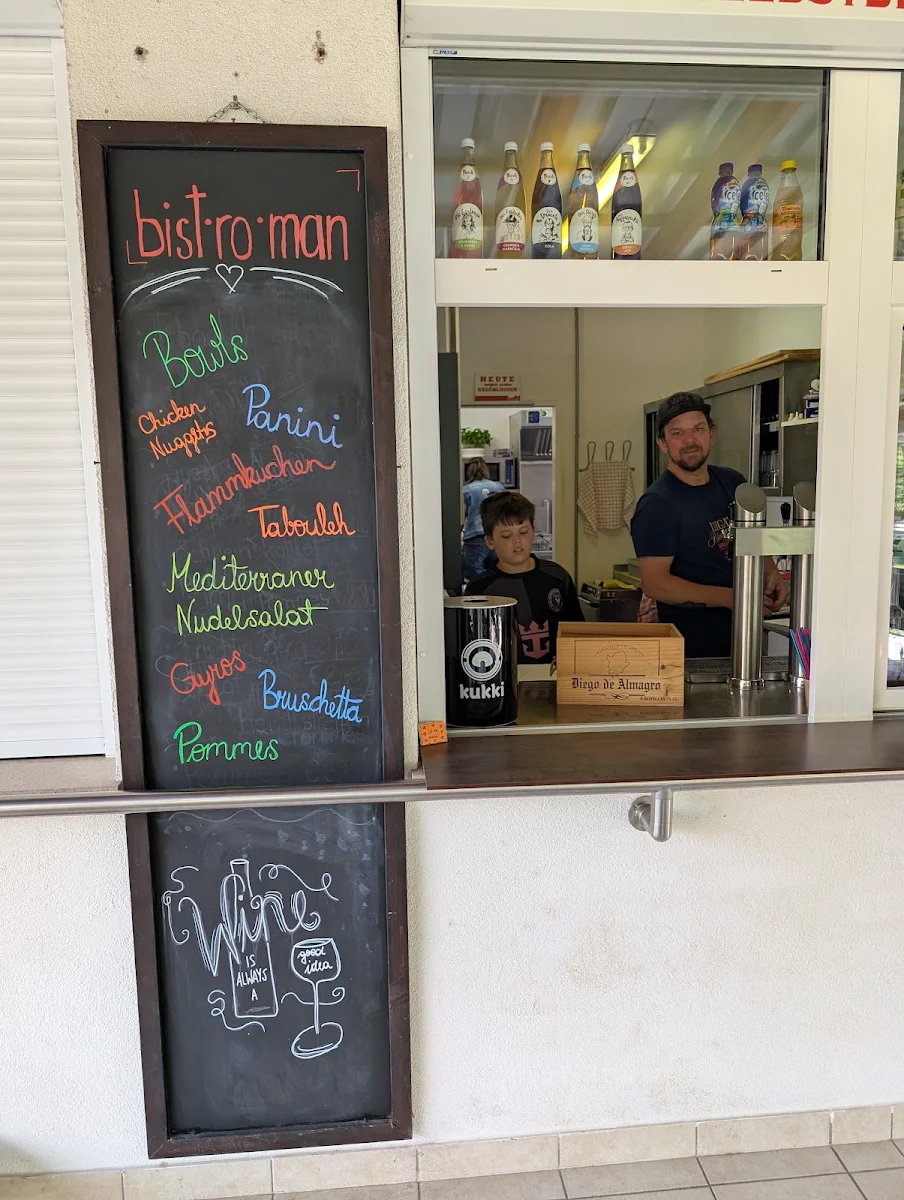 bist·ro·man
Bowls
Chicken
Nuggets
Panini
Flammkuchen
Tabouleh
Mediterraner
Nudelsalat
Gyros
Bruschetta
Pommes
Wine
IS
ALWAYS
A
good
idea
HEUTE
GESCHLOSSEN
kukki
Diego de Almagro
COLA